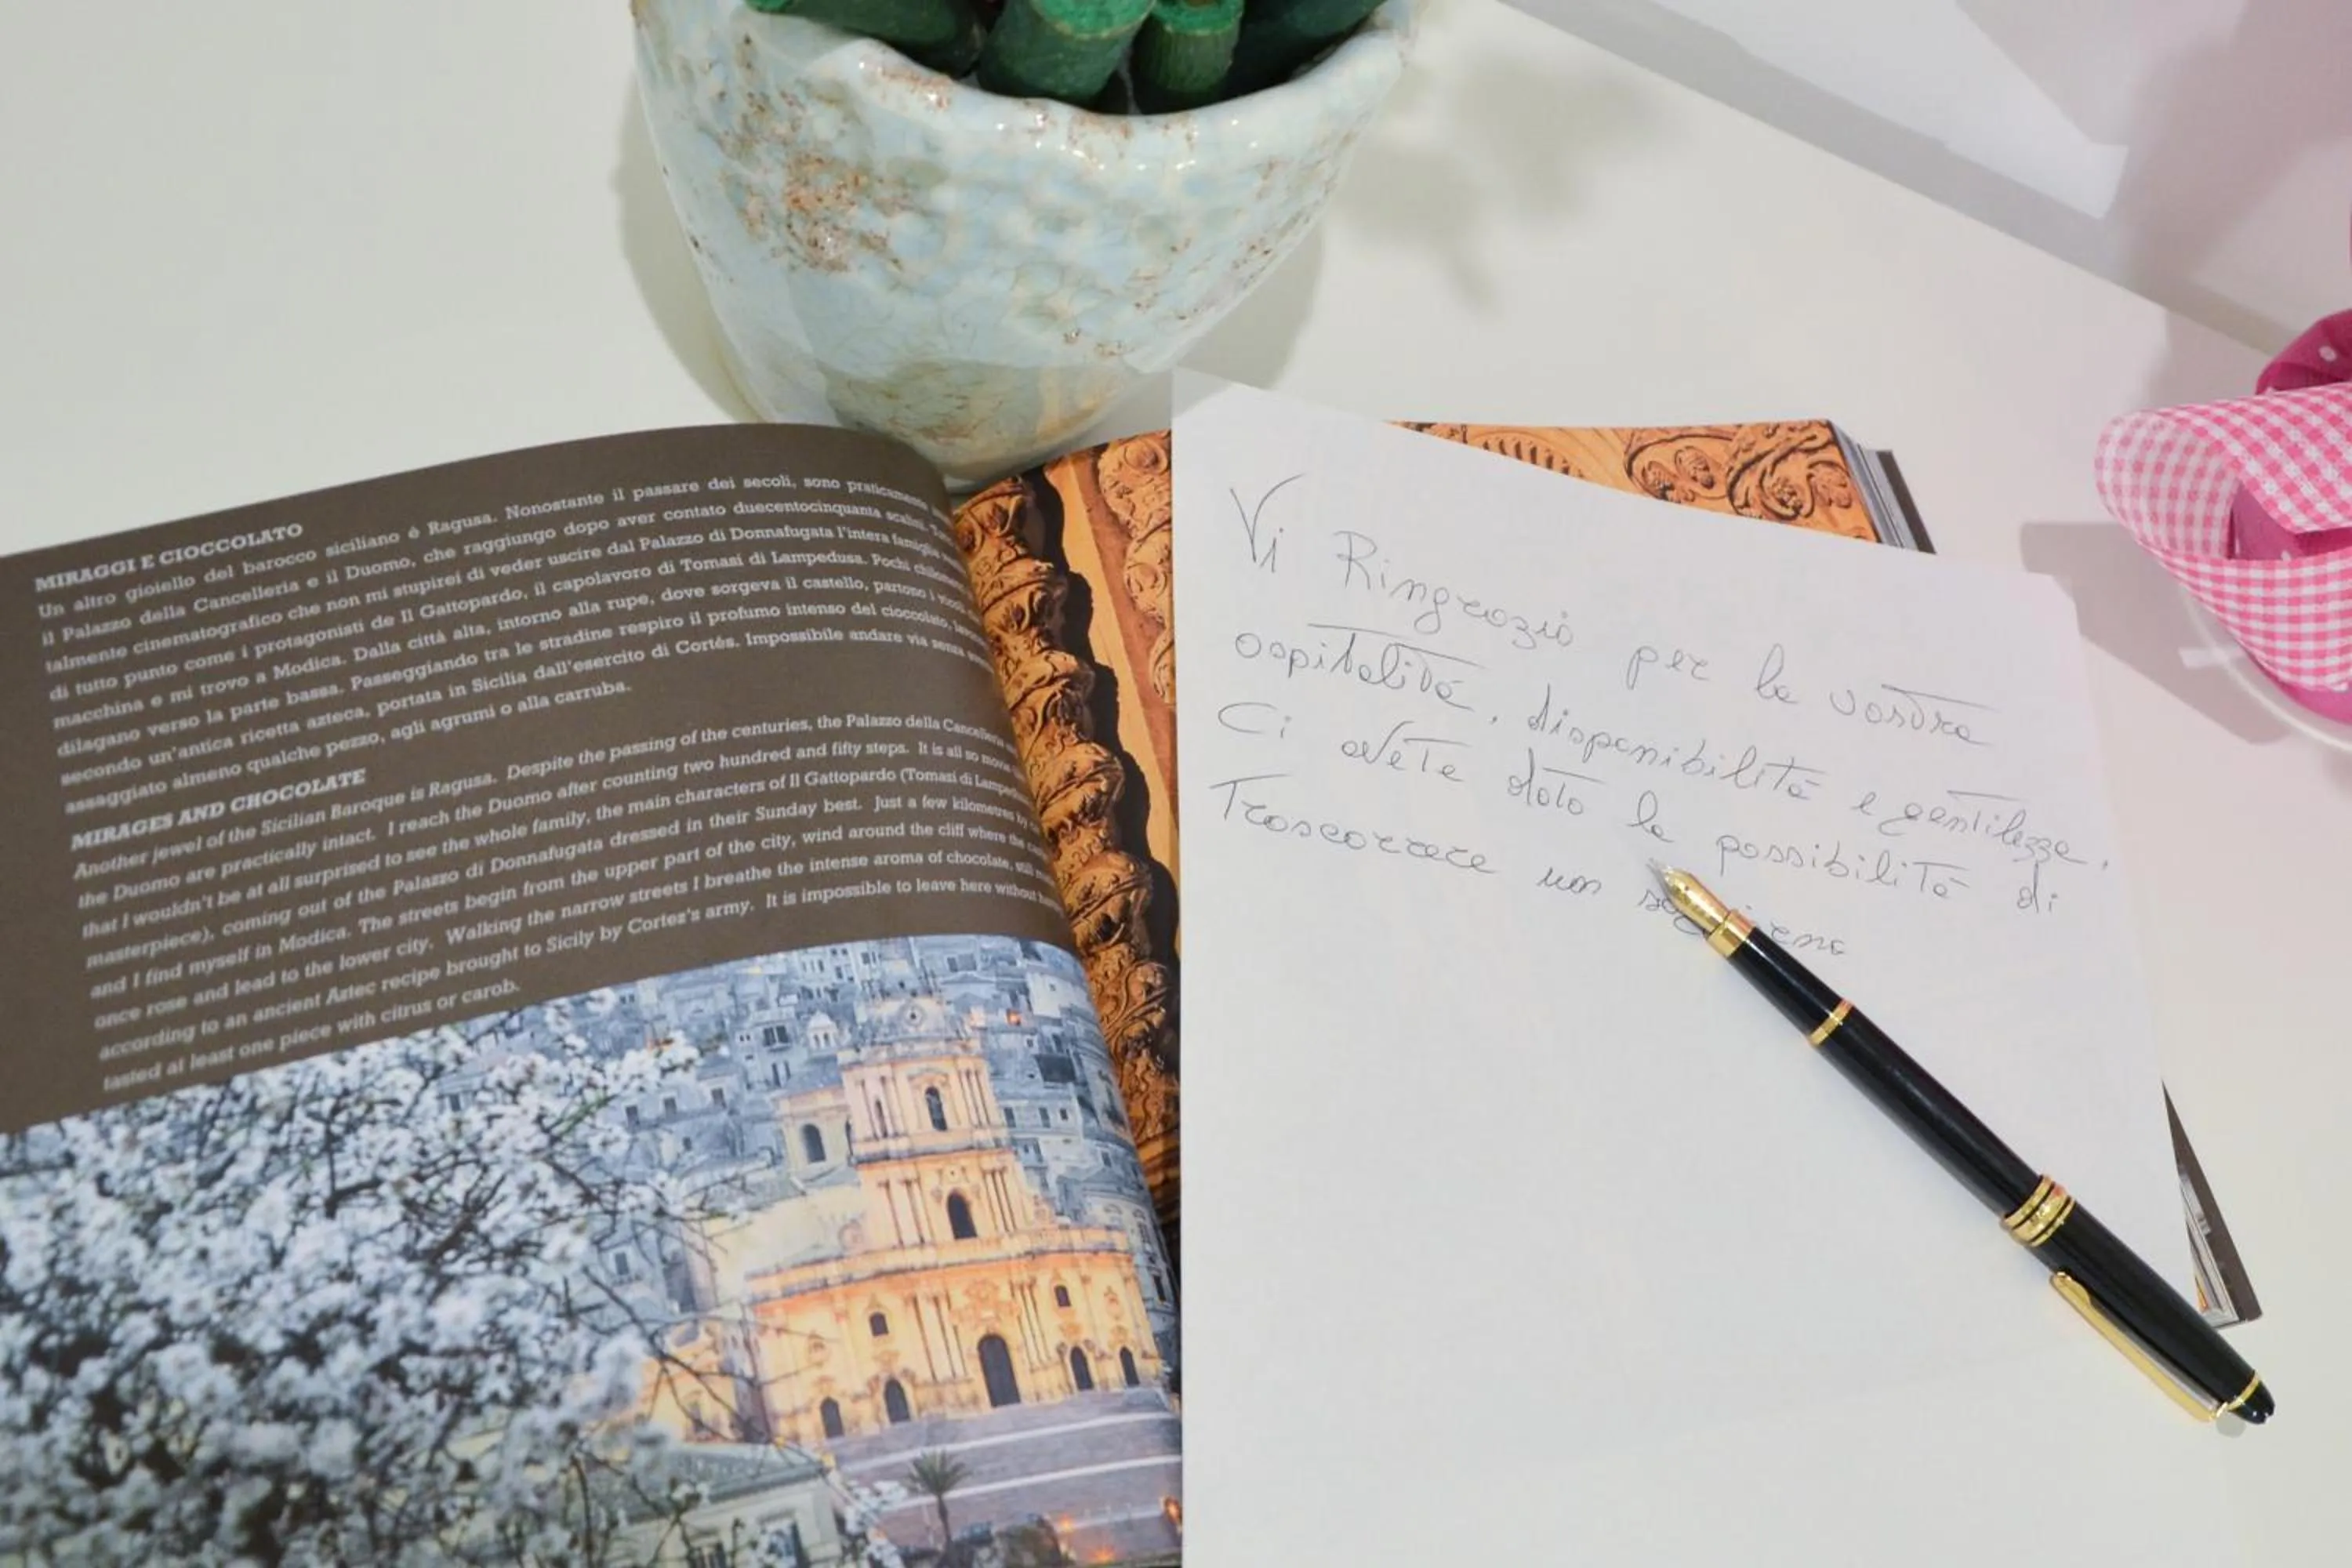 MIRAGGI E CIOCCOLATO
Un altro gioiello del barocco siciliano è Ragusa. Nonostante il passare dei secoli, sono praticamente
il Palazzo della Cancelleria e il Duomo, che raggiungo dopo aver contato duecentocinquanta scalini.
talmente cinematografico che non mi stupirei di veder uscire dal Palazzo di Donnafugata l'intera famiglia
di tutto punto come i protagonisti de Il Gattopardo, il capolavoro di Tomasi di Lampedusa. Pochi
macchina e mi trovo a Modica. Dalla città alta, intorno alla rupe, dove sorgeva il castello, partono i
dilagano verso la parte bassa. Passeggiando tra le stradine respiro il profumo intenso del cioccolato,
secondo un'antica ricetta azteca, portata in Sicilia dall'esercito di Cortés. Impossibile andare via senza
assaggiato almeno qualche pezzo, agli agrumi o alla carruba.
MIRAGES AND CHOCOLATE
Another jewel of the Sicilian Baroque is Ragusa. Despite the passing of the centuries, the Palazzo della
the Duomo are practically intact. I reach the Duomo after counting two hundred and fifty steps. It is all so
that I wouldn't be at all surprised to see the whole family, the main characters of Il Gattopardo (Tomasi di
masterpiece), coming out of the Palazzo di Donnafugata dressed in their Sunday best. Just a few kilometres by
and I find myself in Modica. The streets begin from the upper part of the city, wind around the cliff where the
once rose and lead to the lower city. Walking the narrow streets I breathe the intense aroma of chocolate, still
according to an ancient Aztec recipe brought to Sicily by Cortez's army. It is impossible to leave here without
tasted at least one piece with citrus or carob.
Vi Ringrazio per la vostra
ospitalità, disponibilità e gentilezza.
Ci avete dato la possibilità di
Trascorrere un